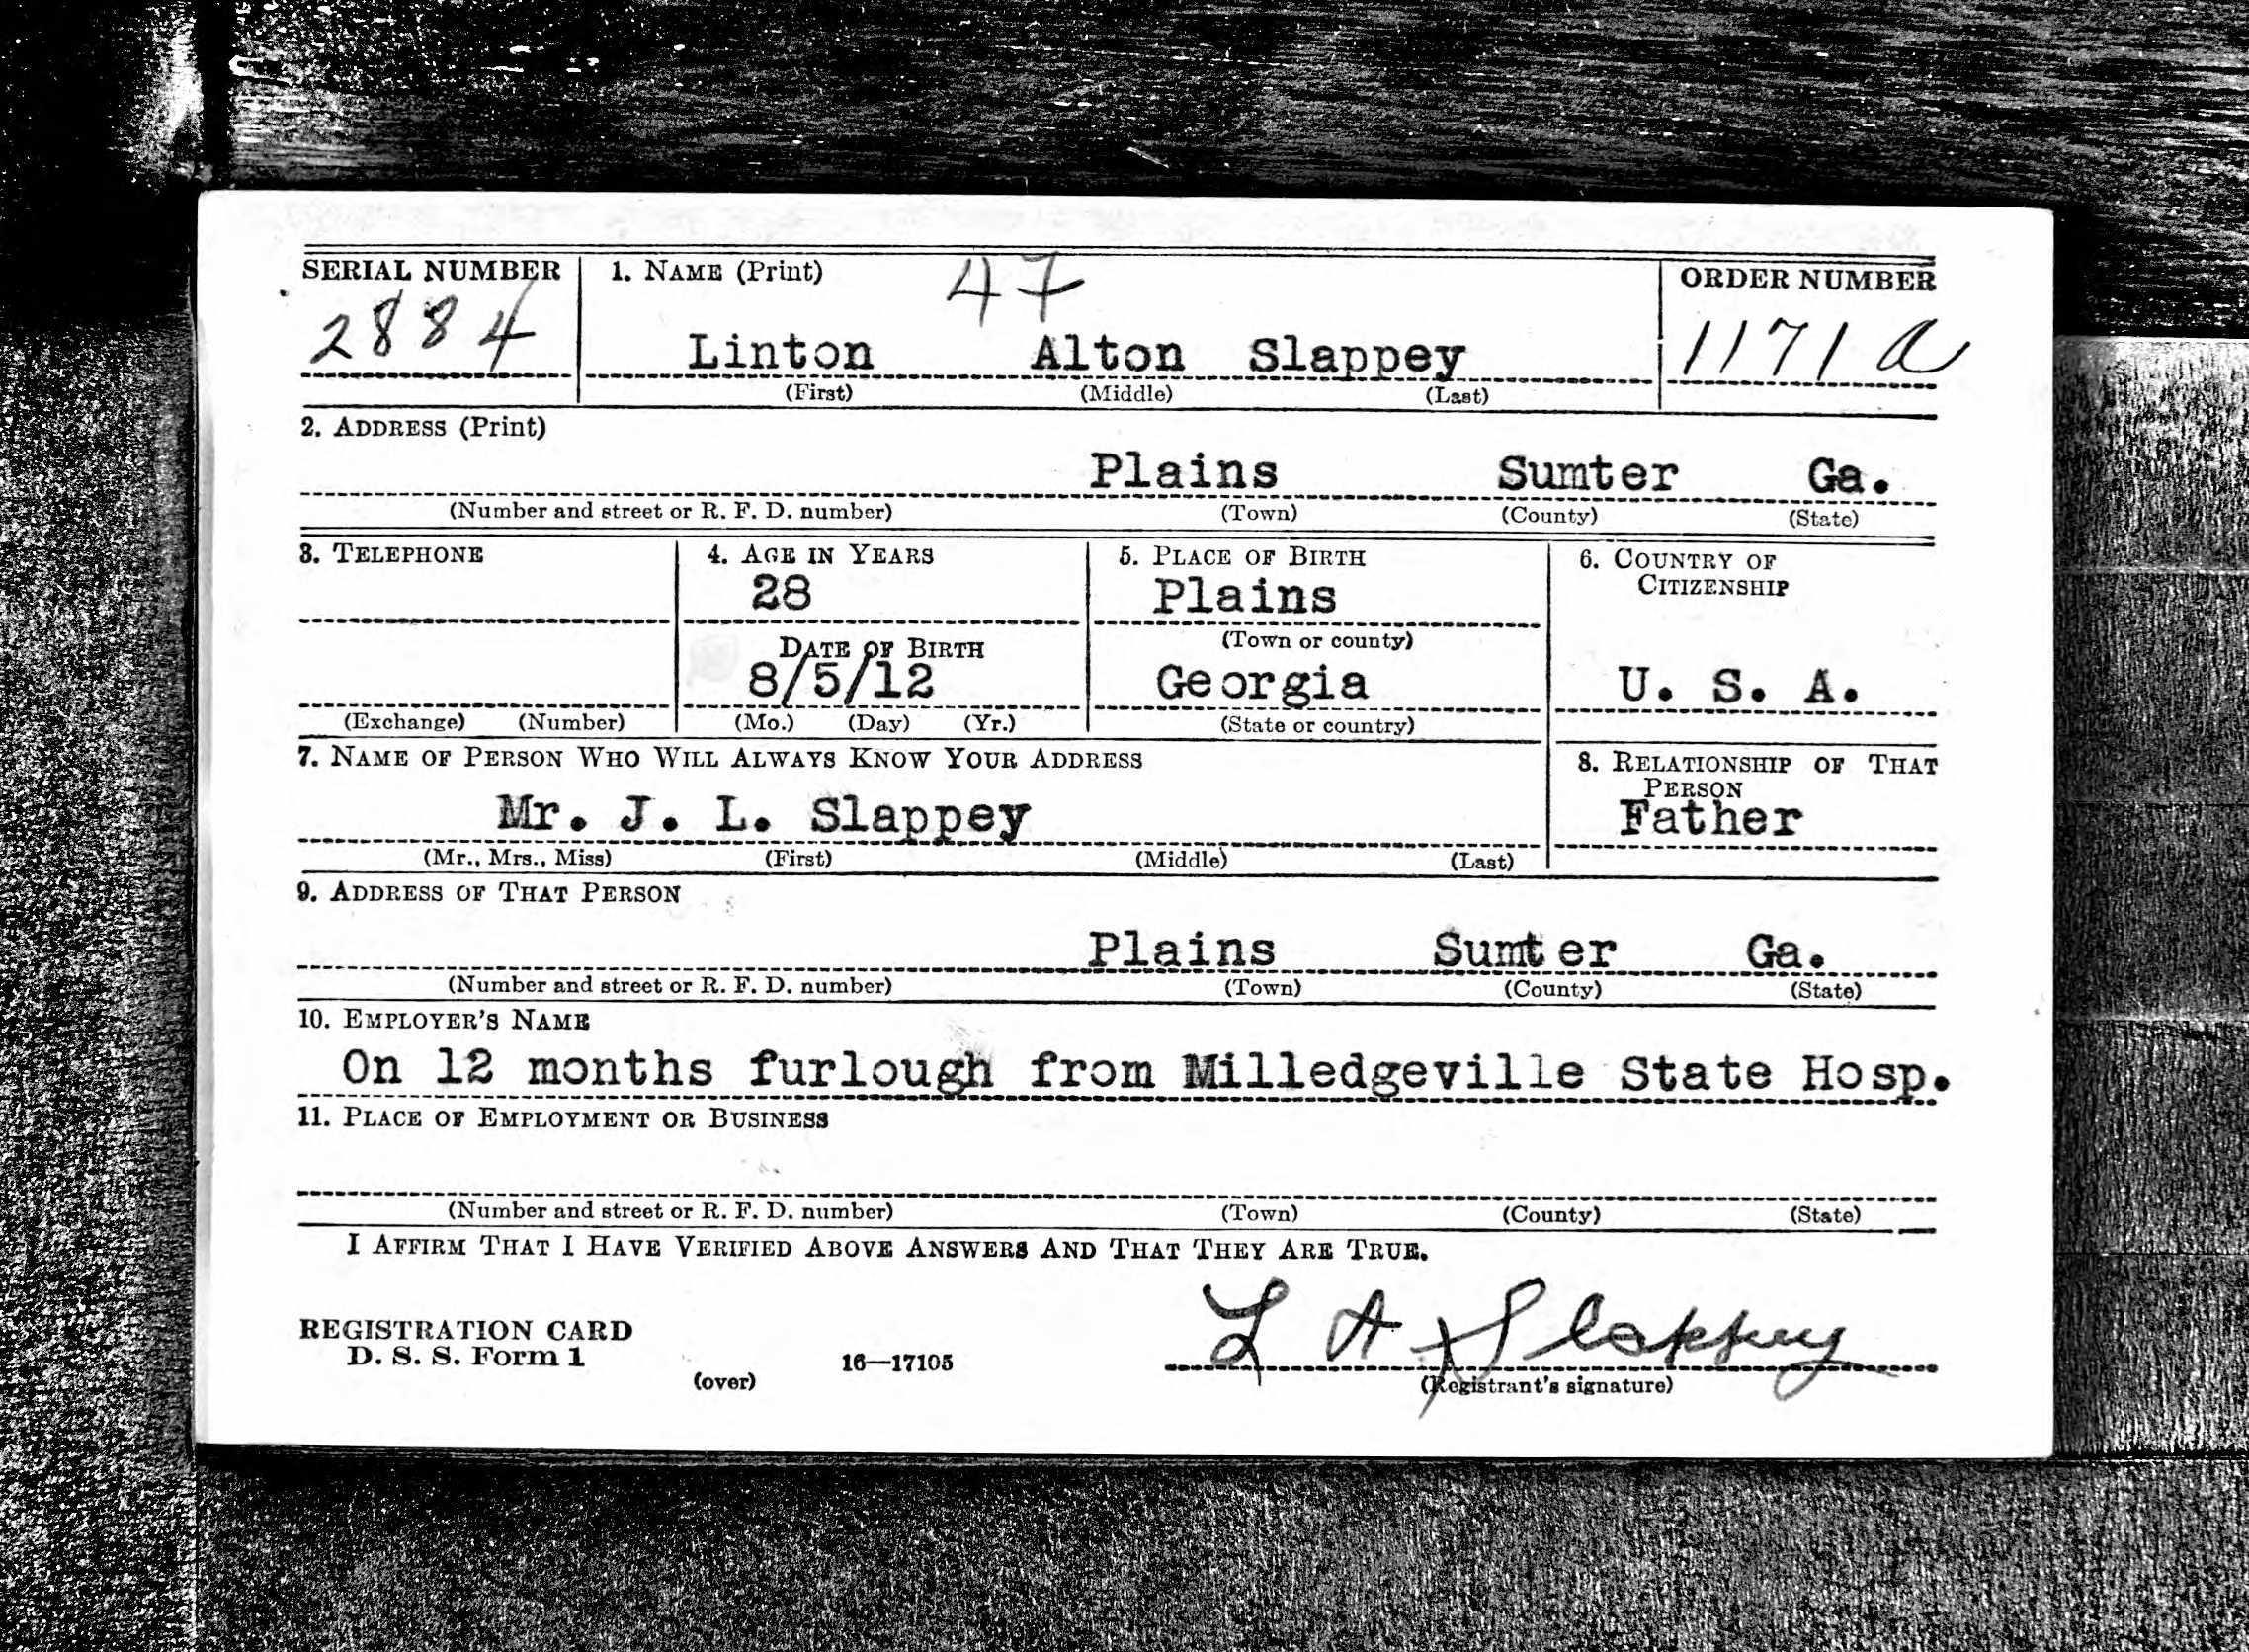 SERIAL NUMBER 1. NAME (Print) 47 ORDER NUMBER
2884 Linton Alton Slappey 1171 a
(First) (Middle) (Last)
2. ADDRESS (Print)
Plains Sumter Ga.
(Number and street or R. F. D. number) (Town) (County) (State)
3. TELEPHONE 4. AGE IN YEARS 5. PLACE OF BIRTH 6. COUNTRY OF
CITIZENSHIP
28 Plains
(Town or county)
DATE OF BIRTH
8/5/12 Georgia U. S. A.
(Exchange) (Number) (Mo.) (Day) (Yr.) (State or country)
7. NAME OF PERSON WHO WILL ALWAYS KNOW YOUR ADDRESS 8. RELATIONSHIP OF THAT
PERSON
Mr. J. L. Slappey Father
(Mr., Mrs., Miss) (First) (Middle) (Last)
9. ADDRESS OF THAT PERSON
Plains Sumter Ga.
(Number and street or R. F. D. number) (Town) (County) (State)
10. EMPLOYER'S NAME
On 12 months furlough from Milledgeville State Hosp.
11. PLACE OF EMPLOYMENT OR BUSINESS
(Number and street or R. F. D. number) (Town) (County) (State)
I AFFIRM THAT I HAVE VERIFIED ABOVE ANSWERS AND THAT THEY ARE TRUE.
L A Slappey
REGISTRATION CARD
D. S. S. Form 1
(over) 16—17105 (Registrant's signature)